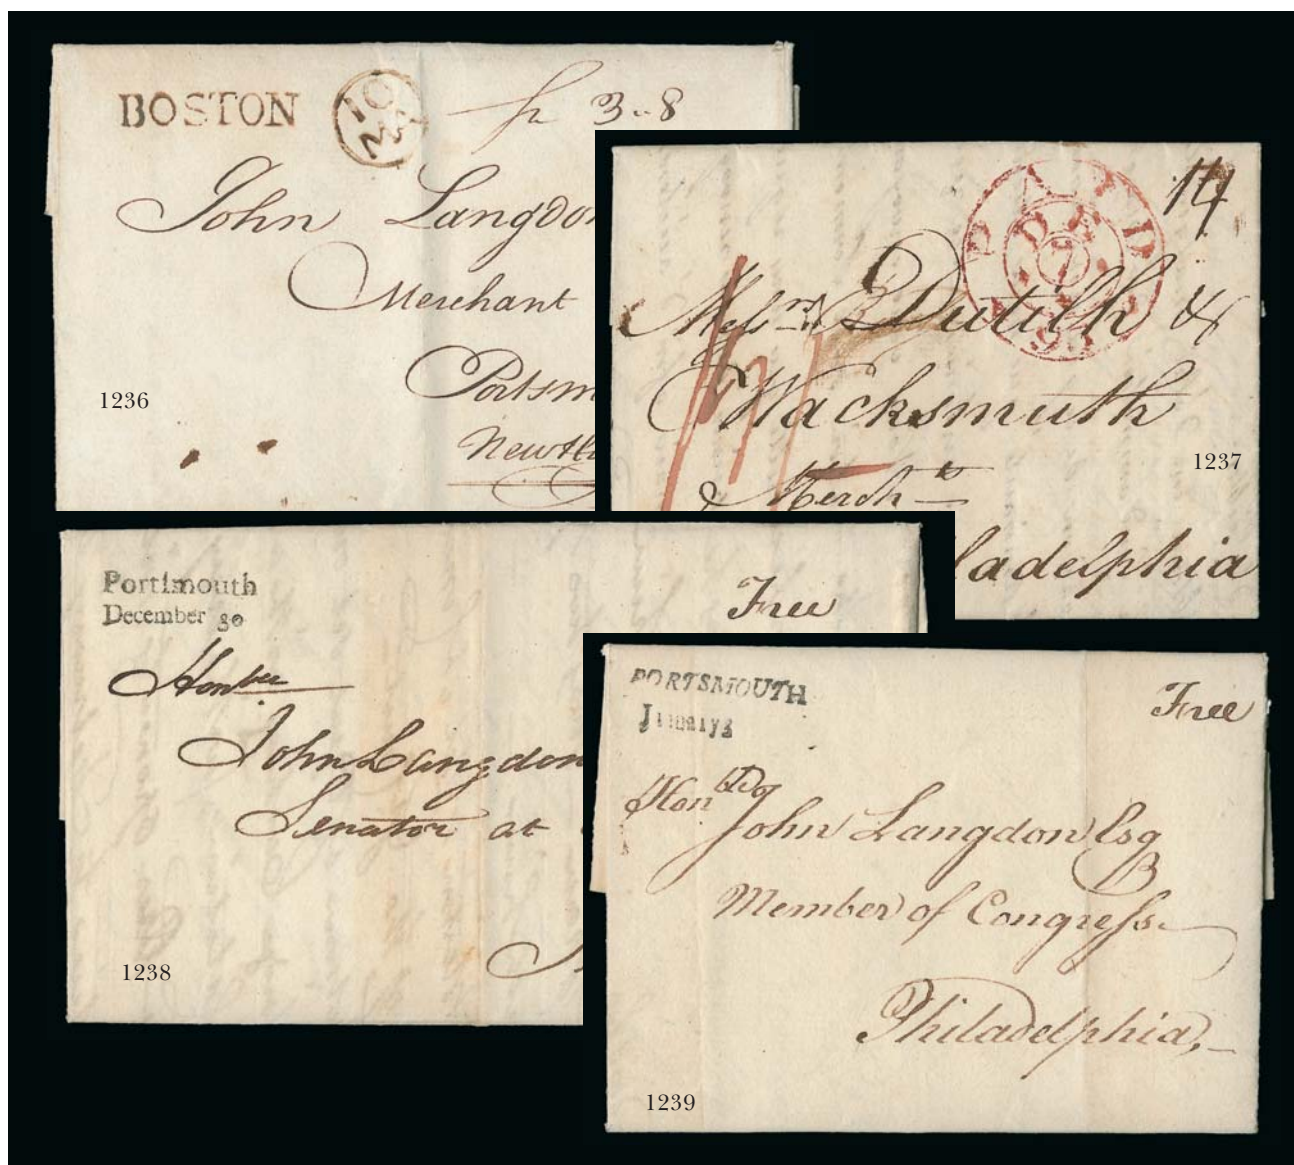 BOSTON 10 3..8
John Langdon
Merchant
Portsm
1236
Newh
PAID
14
DE
7
93
Mess.rs Dutilh &
Wacksmuth
1237
Merch.ts
ladelphia
Portſmouth
December 30
Free
Hon.ble
John Langdon
Senator at
1238
PORTSMOUTH
January 2
Free
Hon.ble
John Langdon Esq
Member of Congreſs
Philadelphia,
1239